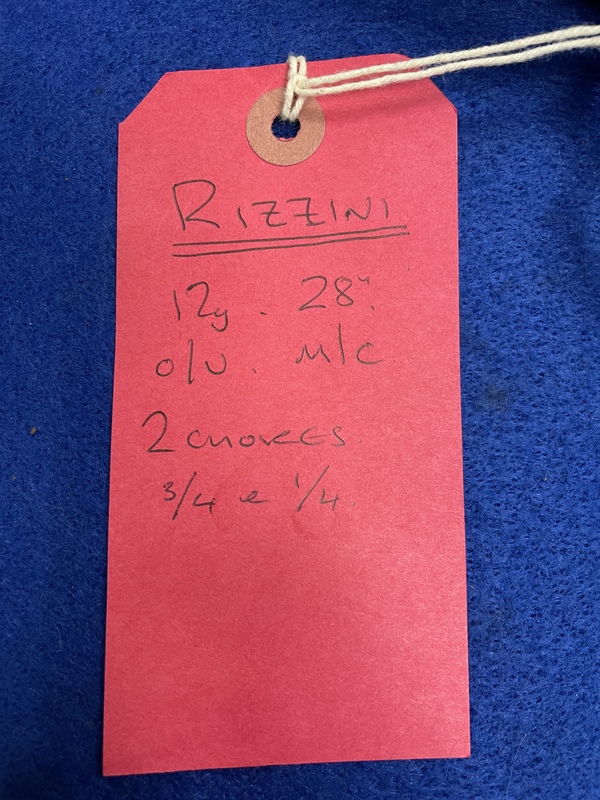 RIZZINI
12g. 28".
o/u. M/C.
2 CHOKES
3/4 e 1/4.